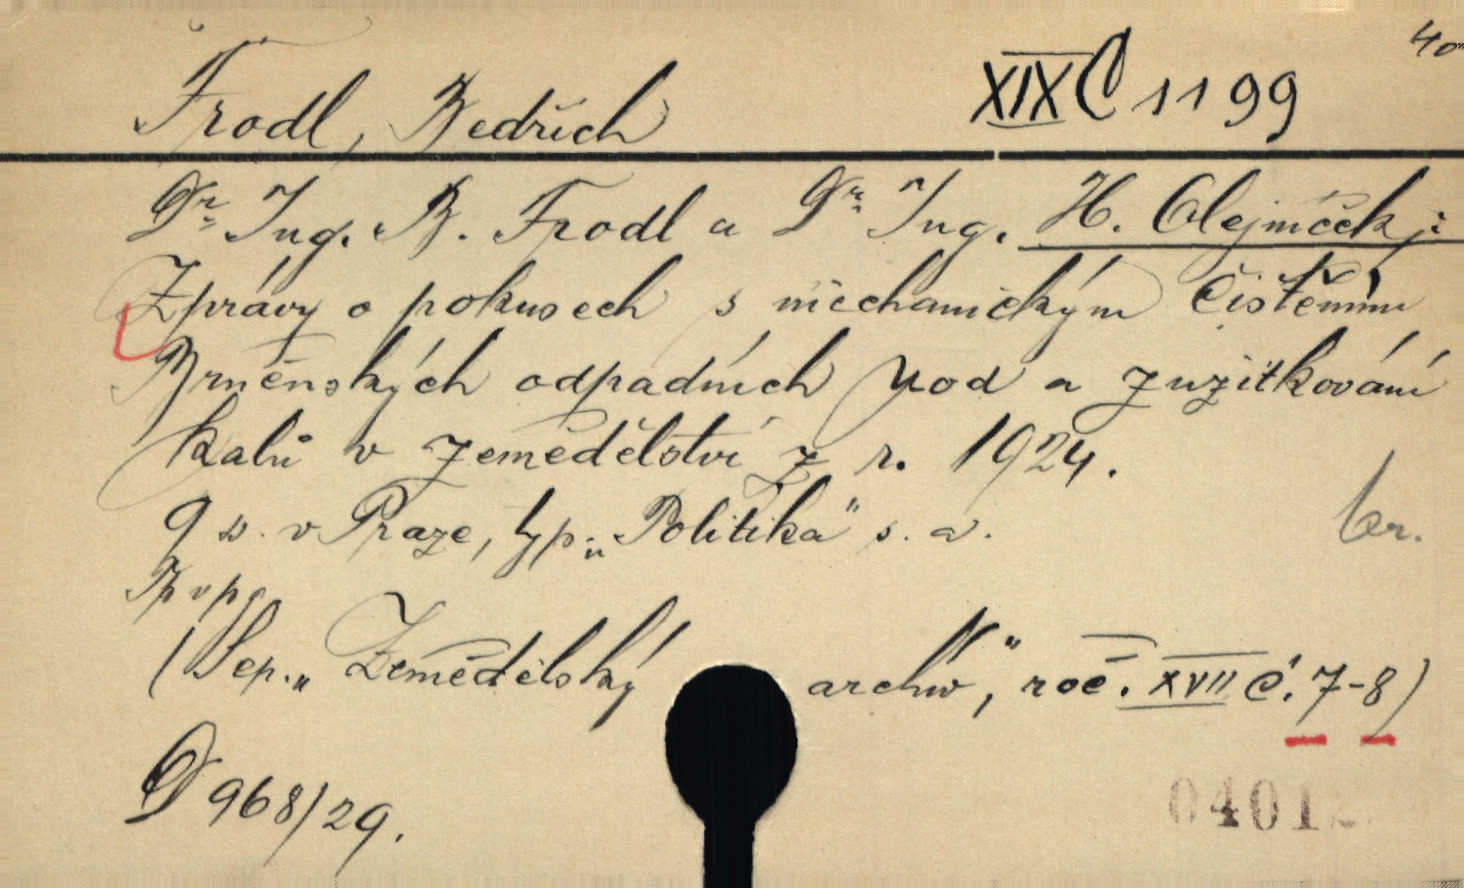 40
Frodl, Bedřich XIX C 1199
Dr. Ing. B. Frodl a Dr. Ing. H. Olejníček:
Zprávy o pokusech s mechanickým čistěním
Brněnských odpadních vod a zužitkování
kalů v zemědělství z r. 1924.
9 s. v Praze, typ. „Politika" s. a.
br.
(Sep. „Zemědělský archiv", roč. XVII č. 7-8)
D 968/29.
0401